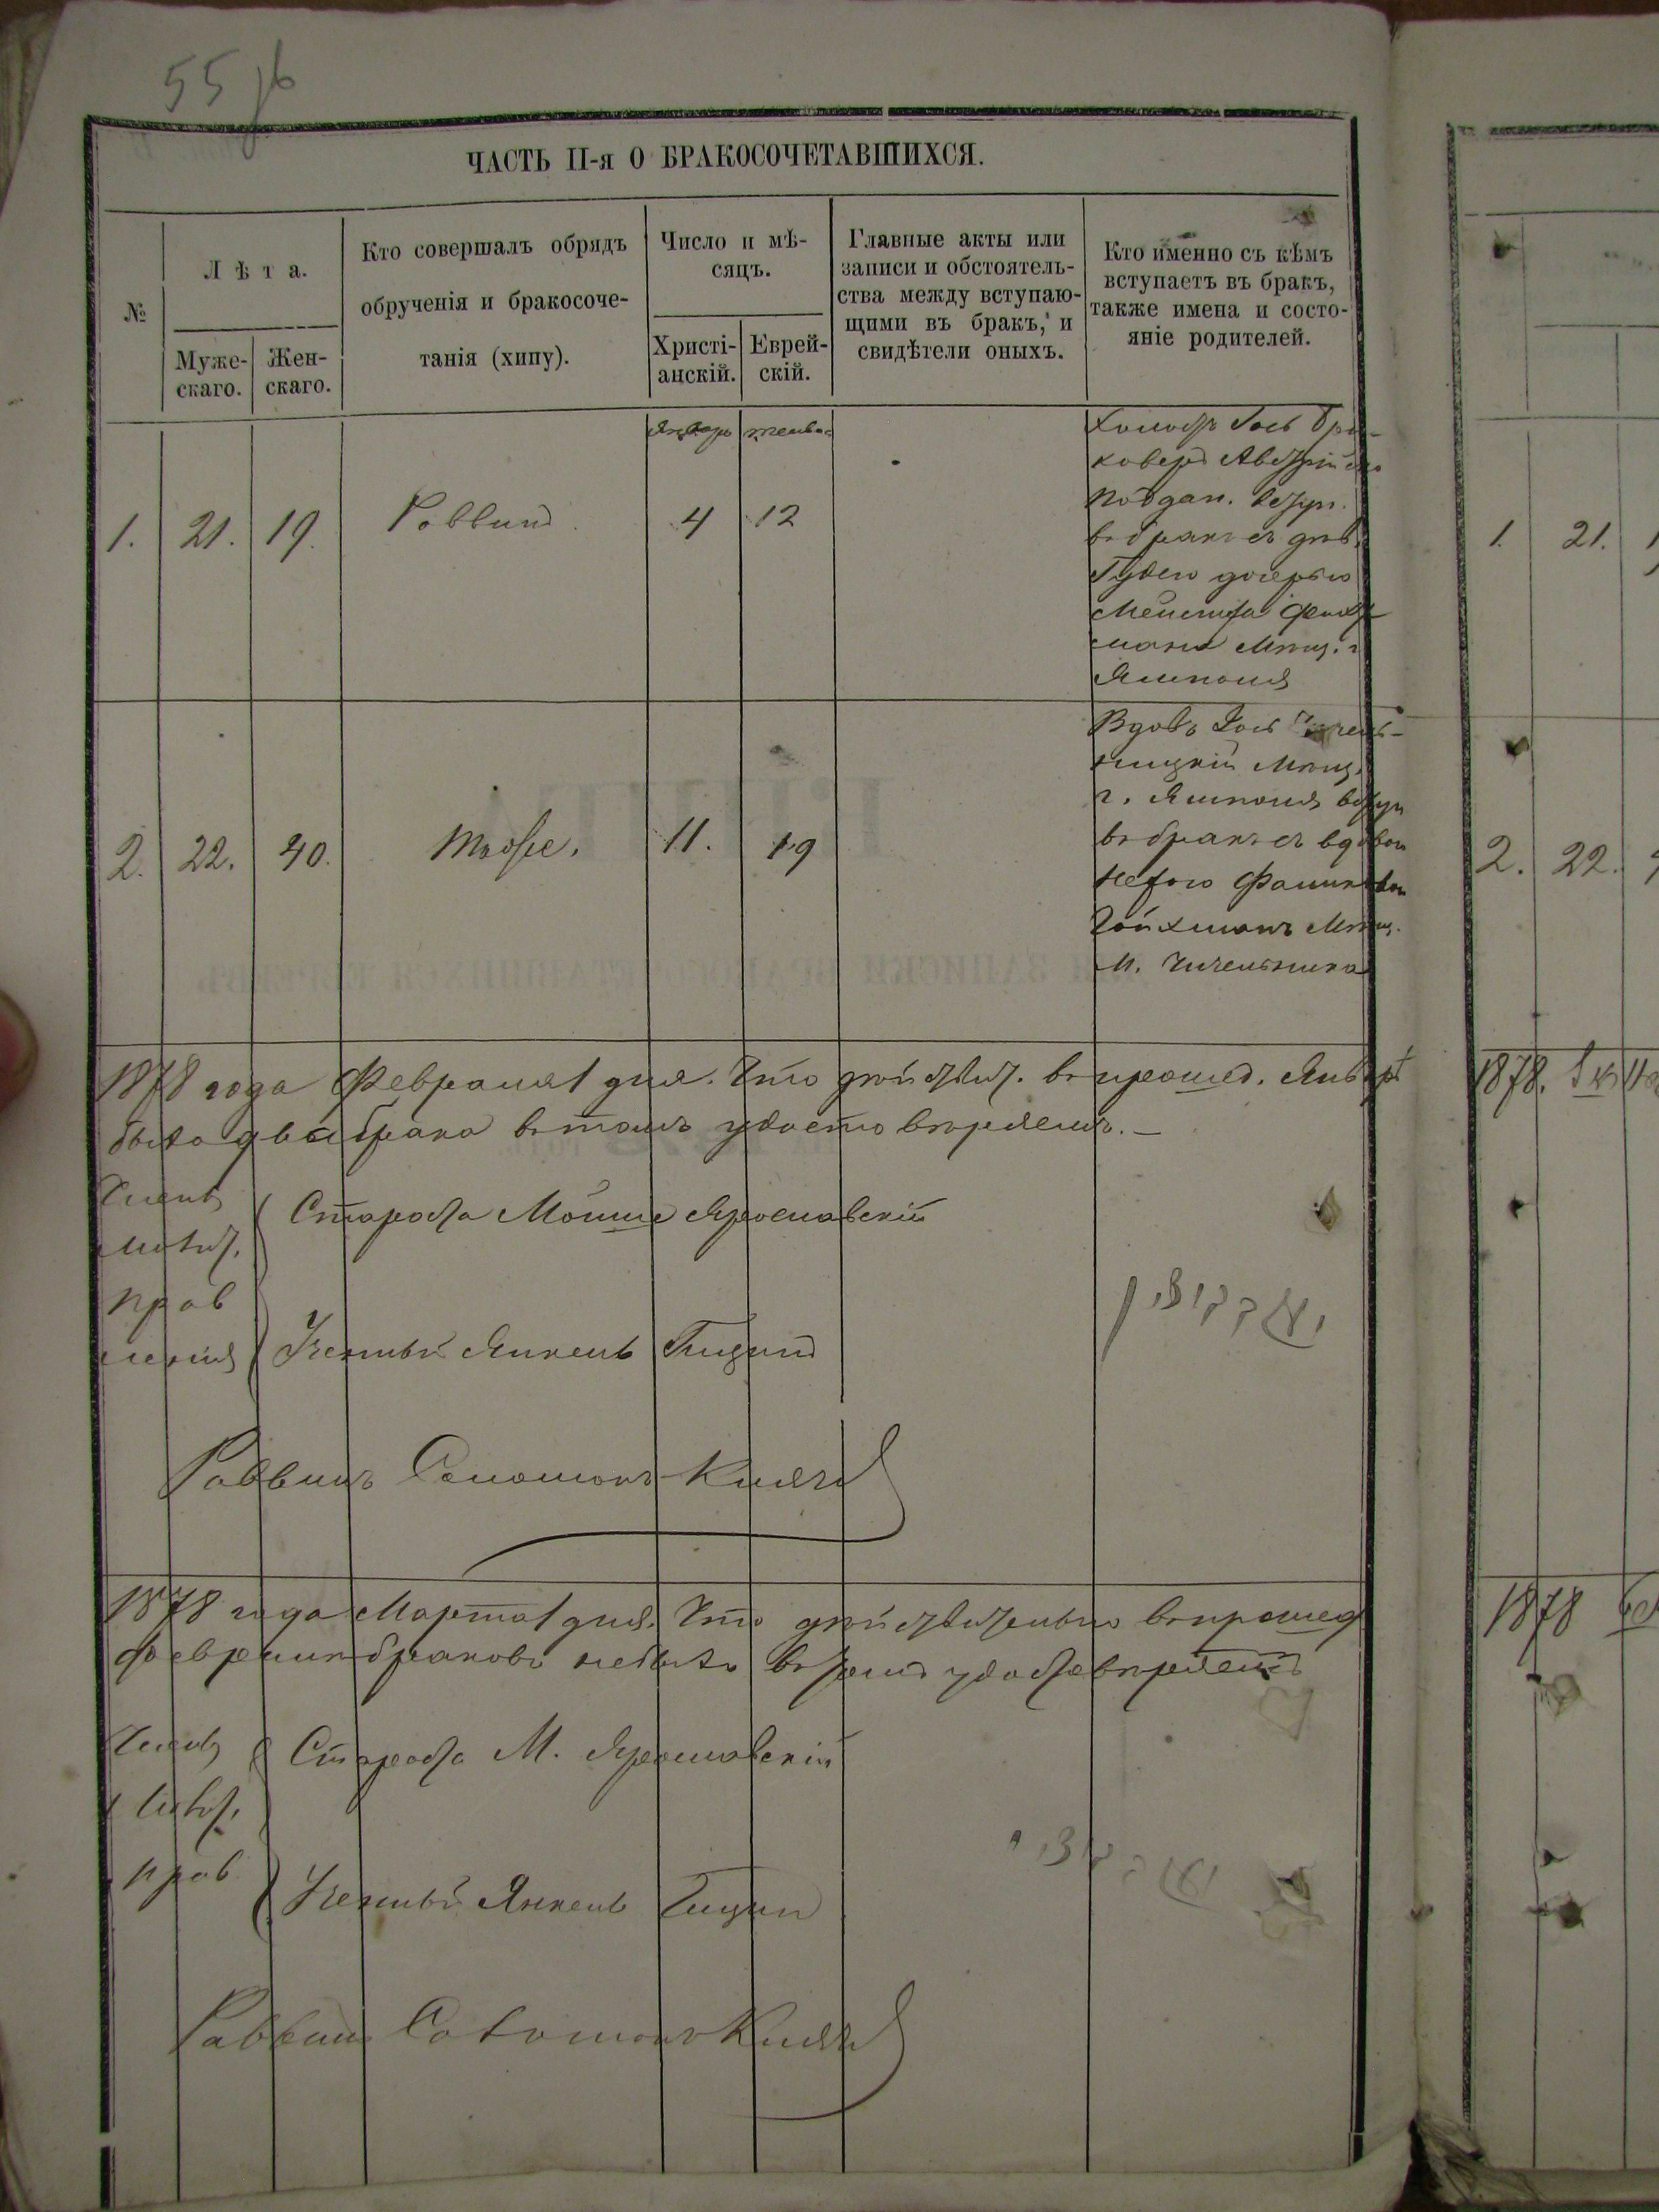 55 об
ЧАСТЬ II-я О БРАКОСОЧЕТАВШИХСЯ.
№
Лѣта.
Муже-
скаго.
Жен-
скаго.
Кто совершалъ обрядъ
обрученія и бракосоче-
танія (хипу).
Число и мѣ-
сяцъ.
Христі-
анскій.
Еврей-
скій.
Главные акты или
записи и обстоятель-
ства между вступаю-
щими въ бракъ, и
свидѣтели оныхъ.
Кто именно съ кѣмъ
вступаетъ въ бракъ,
также имена и состо-
яніе родителей.
Январь
1. 21. 19. Раввинъ 4 12
Холостъ Іось
Австрійско
поддан. вступ.
въ бракъ съ дѣв.
дочерью
мана Мѣщ. г
Ямполя
2. 22. 40. Тоже. 11. 19
Вдовъ Іось
Мѣщ.
г. Ямполя вступ
въ бракъ съ вдовою
Мѣщ.
м. Чичельника
1878 года Февраля 1 дня. Что дѣйствит. въ прошед. Январѣ
было два брака въ томъ удостовѣряемъ.
Члены
молит.
прав
ленія
Староста Мошко Ярославскій
Ученый Янкель
Раввинъ Соломонъ
1878 года Марта 1 дня. Что дѣйствительно въ прошед
Февралѣ браковъ небыло въ томъ удостовѣряемъ
Члены
молит.
прав
Староста М. Ярославскій
Ученый Янкель
Раввинъ Соломонъ
1. 21.
2. 22.
1878.
1878